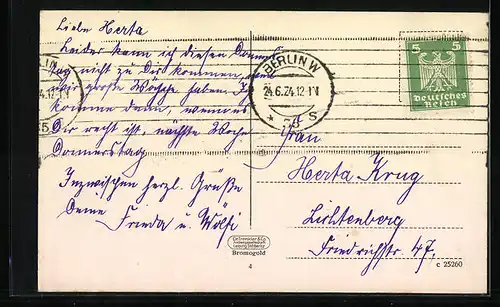 Liebe Herta
Leider kann ich diesen Donners-
tag nicht zu Dir kommen, weil
wir große Wäsche haben. Ich
komme dann, wenn es
Dir recht ist, nächste Woche
Donnerstag
Inzwischen herzl. Grüße
Deine Frieda u. Wölfi
BERLIN W
24.6.24.12-1N
S
5 5
Deutsches
Reich
Frau
Herta Krug
Lichtenberg
Friedrichstr. 47.
Bromogold
4
c 25260